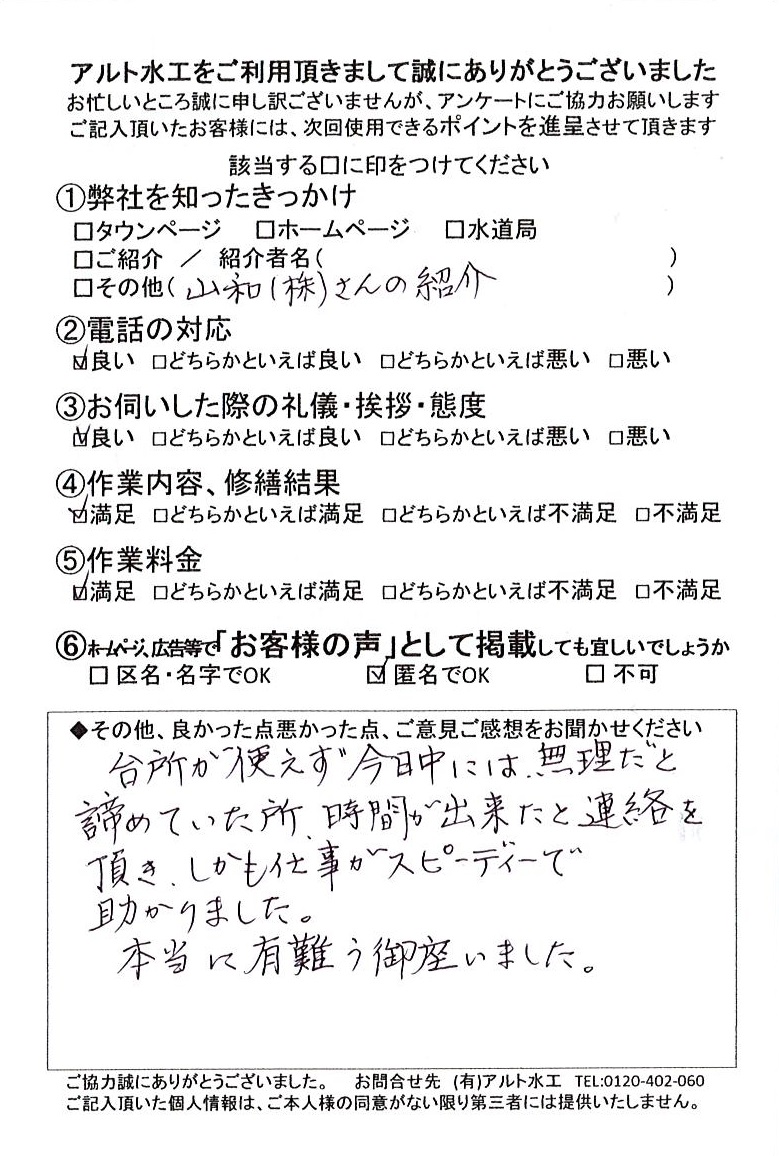 アルト水工をご利用頂きまして誠にありがとうございました
お忙しいところ誠に申し訳ございませんが、アンケートにご協力お願いします
ご記入頂いたお客様には、次回使用できるポイントを進呈させて頂きます
該当する口に印をつけてください
①弊社を知ったきっかけ
□タウンページ □ホームページ □水道局
□ご紹介 ／ 紹介者名( )
□その他( 山和(株)さんの紹介 )
②電話の対応
☑良い □どちらかといえば良い □どちらかといえば悪い □悪い
③お伺いした際の礼儀・挨拶・態度
☑良い □どちらかといえば良い □どちらかといえば悪い □悪い
④作業内容、修繕結果
☑満足 □どちらかといえば満足 □どちらかといえば不満足 □不満足
⑤作業料金
☑満足 □どちらかといえば満足 □どちらかといえば不満足 □不満足
⑥ホームページ、広告等で「お客様の声」として掲載しても宜しいでしょうか
□ 区名・名字でOK ☑ 匿名でOK □ 不可
◆その他、良かった点悪かった点、ご意見ご感想をお聞かせください
台所が使えず今日中には、無理だと
諦めていた所、時間が出来たと連絡を
頂き、しかも仕事がスピーディーで
助かりました。
本当に有難う御座いました。
ご協力誠にありがとうございました。 お問合せ先 (有)アルト水工 TEL:0120-402-060
ご記入頂いた個人情報は、ご本人様の同意がない限り第三者には提供いたしません。